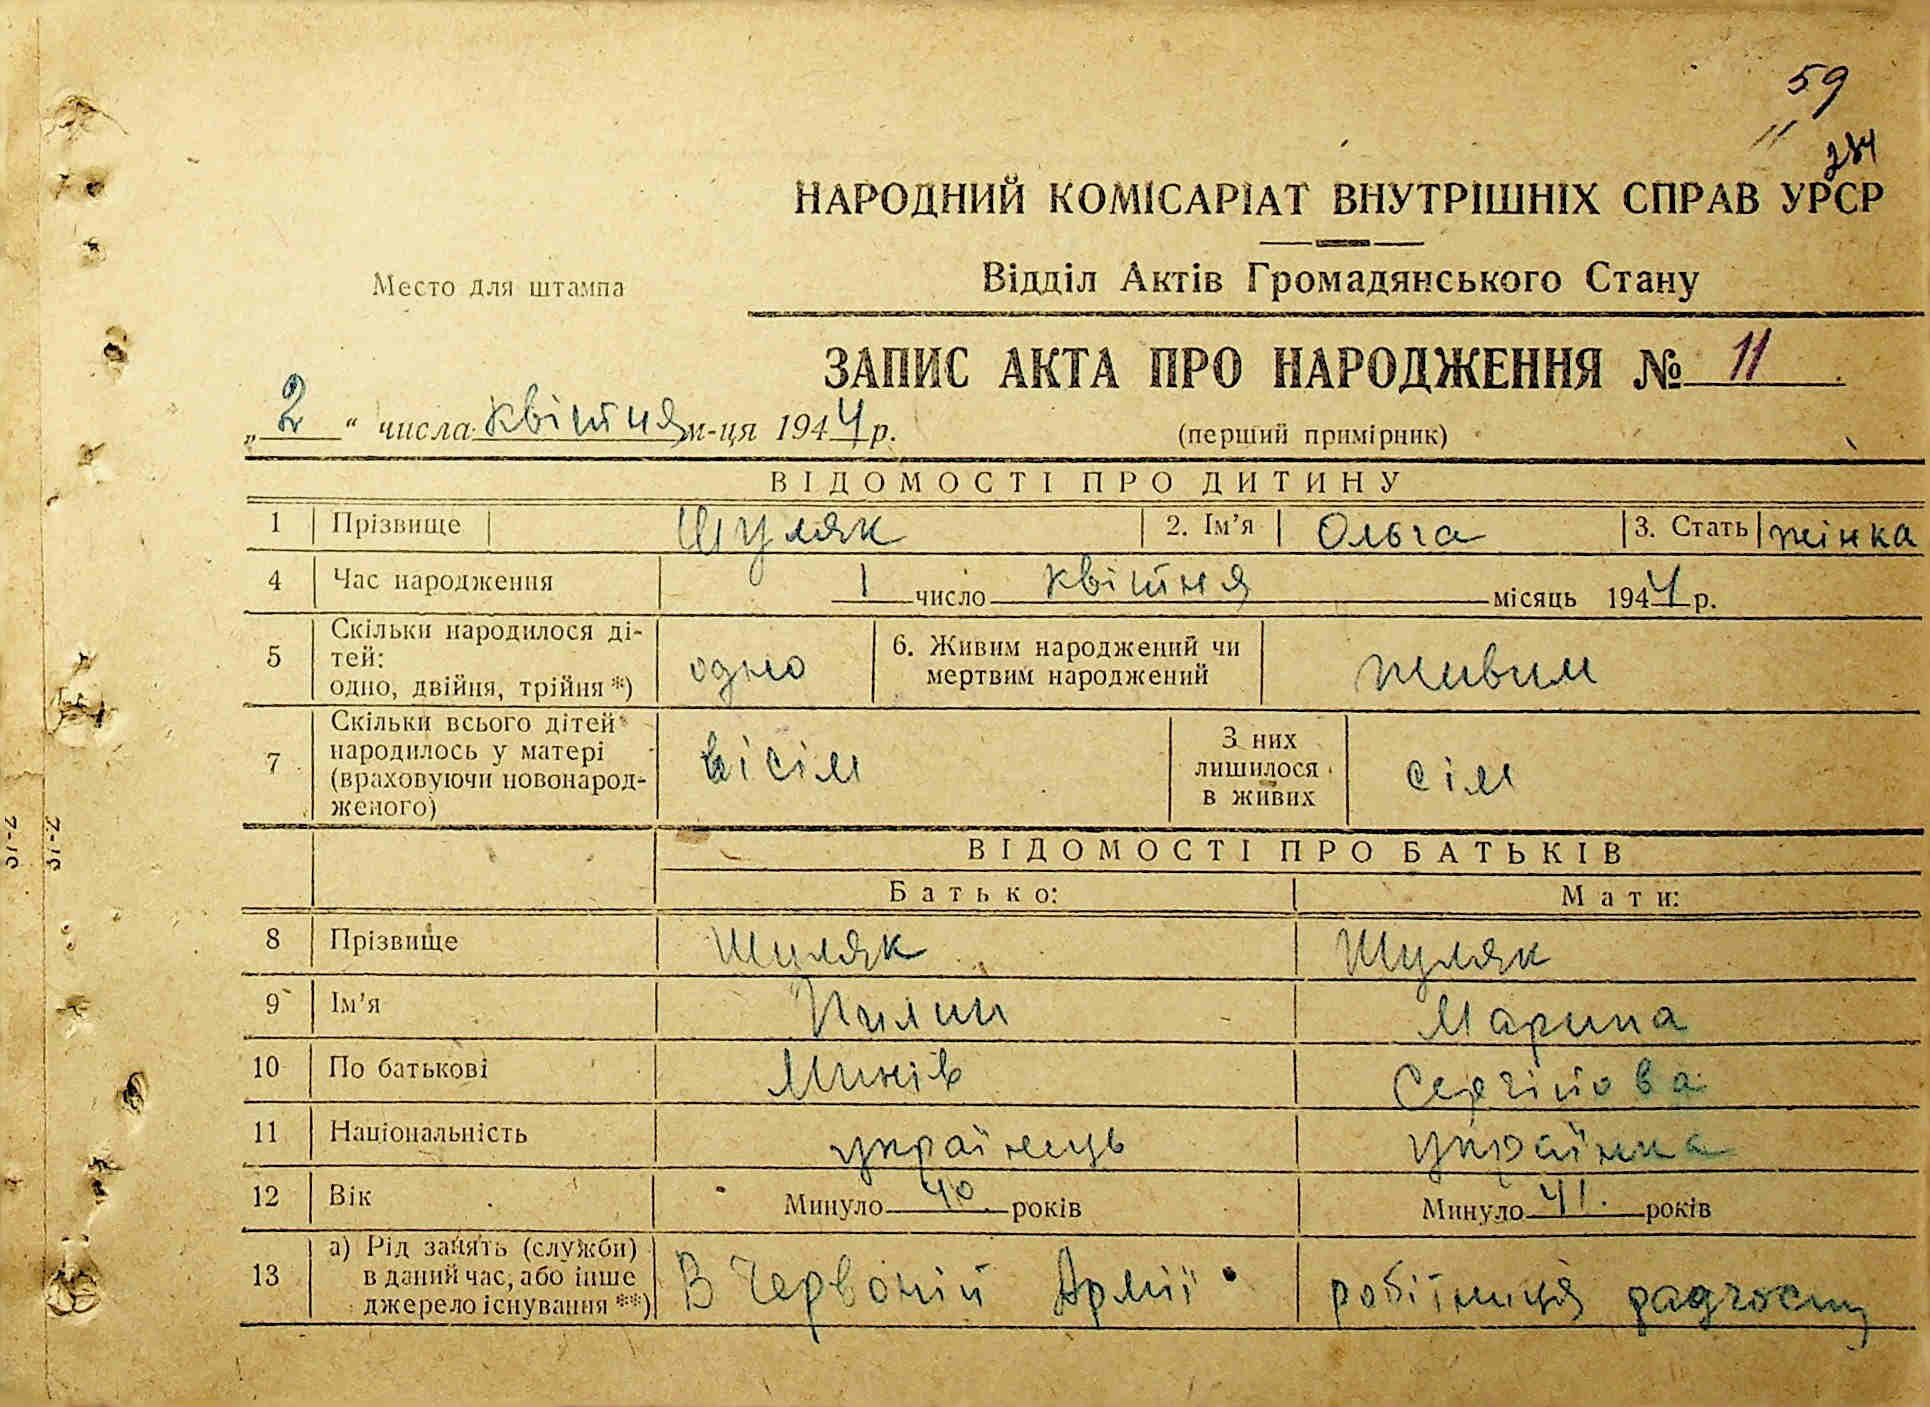 59
11
284
НАРОДНИЙ КОМІСАРІАТ ВНУТРІШНІХ СПРАВ УРСР
Место для штампа
Відділ Актів Громадянського Стану
ЗАПИС АКТА ПРО НАРОДЖЕННЯ № 11
„2“ числа квітня м-ця 1944 р.
(перший примірник)
ВІДОМОСТІ ПРО ДИТИНУ
1 Прізвище Шуляк 2. Ім’я Ольга 3. Стать жінка
4 Час народження 1 число квітня місяць 1944 р.
5 Скільки народилося ді-
тей:
одно, двійня, трійня *) одно 6. Живим народжений чи
мертвим народжений живим
7 Скільки всього дітей
народилось у матері
(враховуючи новонарод-
женого) вісім З них
лишилося
в живих сім
ВІДОМОСТІ ПРО БАТЬКІВ
Батько: Мати:
8 Прізвище Шуляк Шуляк
9 Ім’я Пилип Марина
10 По батькові Минів Сергійова
11 Національність українець українка
12 Вік Минуло 40 років Минуло 41. років
13 а) Рід занять (служби)
в даний час, або інше
джерело існування **) В Червоній Армії робітниця радгоспу